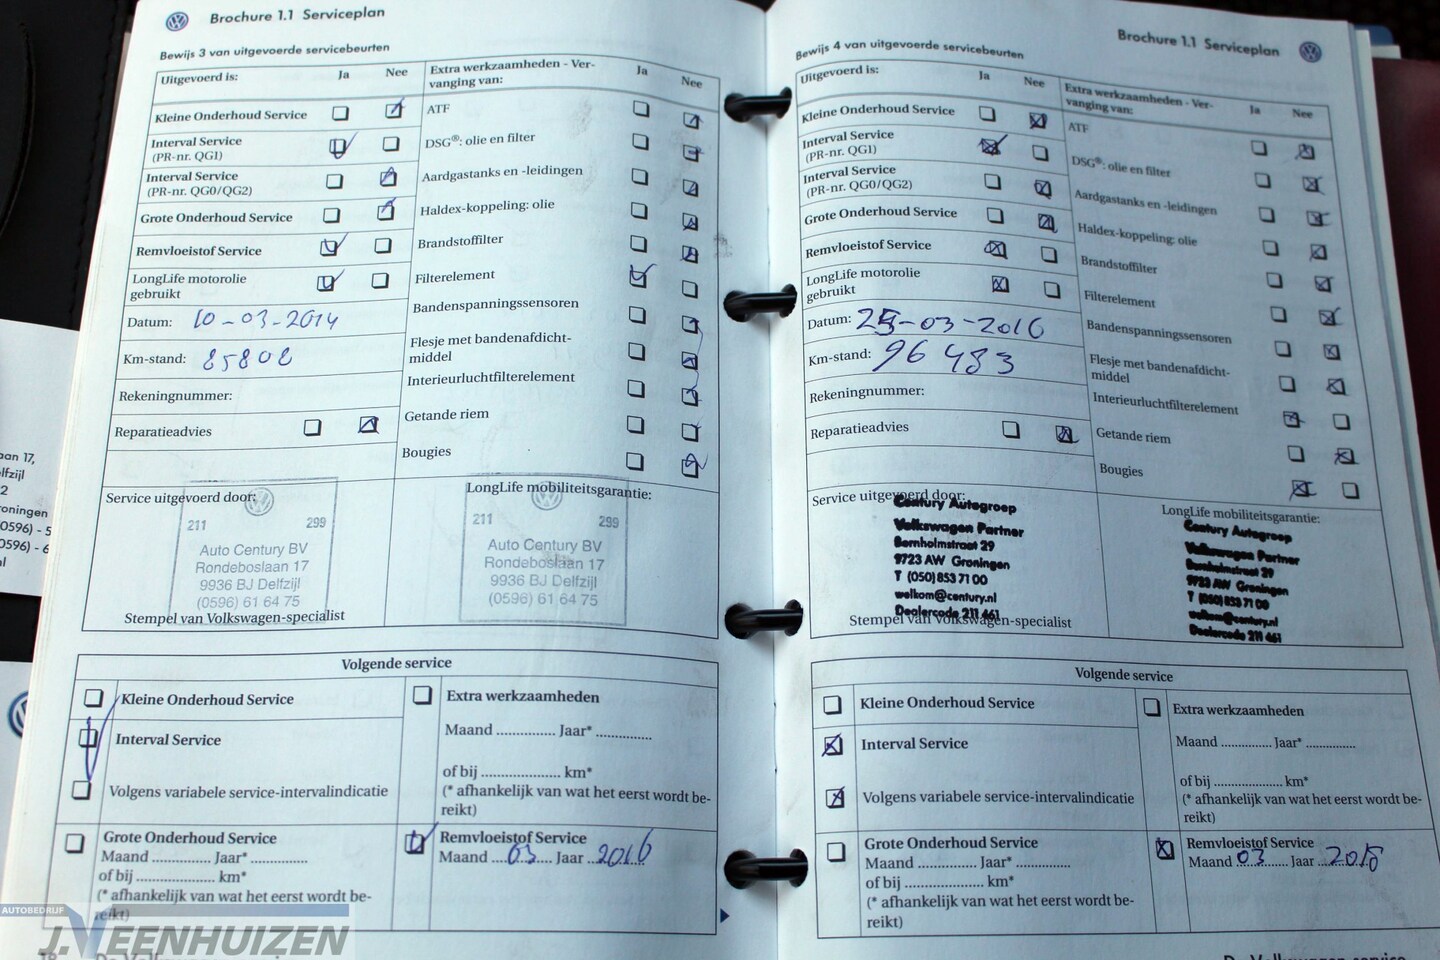 Brochure 1.1 Serviceplan
Bewijs 3 van uitgevoerde servicebeurten
Uitgevoerd is: Ja Nee
Kleine Onderhoud Service
Interval Service
(PR-nr. QG1)
Interval Service
(PR-nr. QG0/QG2)
Grote Onderhoud Service
Remvloeistof Service
LongLife motorolie
gebruikt
Datum: 10-03-2014
Km-stand: 85808
Rekeningnummer:
Reparatieadvies
Extra werkzaamheden - Ver-
vanging van: Ja Nee
ATF
DSG®: olie en filter
Aardgastanks en -leidingen
Haldex-koppeling: olie
Brandstoffilter
Filterelement
Bandenspanningssensoren
Flesje met bandenafdicht-
middel
Interieurluchtfilterelement
Getande riem
Bougies
Service uitgevoerd door:
211 299
Auto Century BV
Rondeboslaan 17
9936 BJ Delfzijl
(0596) 61 64 75
Stempel van Volkswagen-specialist
LongLife mobiliteitsgarantie:
211 299
Auto Century BV
Rondeboslaan 17
9936 BJ Delfzijl
(0596) 61 64 75
Volgende service
Kleine Onderhoud Service
Interval Service
Volgens variabele service-intervalindicatie
Grote Onderhoud Service
Maand .............. Jaar* ..............
of bij .................... km*
(* afhankelijk van wat het eerst wordt be-
reikt)
Extra werkzaamheden
Maand .............. Jaar* ..............
of bij .................... km*
(* afhankelijk van wat het eerst wordt be-
reikt)
Remvloeistof Service
Maand 03 Jaar 2016
Brochure 1.1 Serviceplan
Bewijs 4 van uitgevoerde servicebeurten
Uitgevoerd is: Ja Nee
Kleine Onderhoud Service
Interval Service
(PR-nr. QG1)
Interval Service
(PR-nr. QG0/QG2)
Grote Onderhoud Service
Remvloeistof Service
LongLife motorolie
gebruikt
Datum: 25-03-2016
Km-stand: 96483
Rekeningnummer:
Reparatieadvies
Extra werkzaamheden - Ver-
vanging van: Ja Nee
ATF
DSG®: olie en filter
Aardgastanks en -leidingen
Haldex-koppeling: olie
Brandstoffilter
Filterelement
Bandenspanningssensoren
Flesje met bandenafdicht-
middel
Interieurluchtfilterelement
Getande riem
Bougies
Service uitgevoerd door:
Century Autogroep
Volkswagen Partner
Bornholmstraat 29
9723 AW Groningen
T (050) 853 71 00
welkom@century.nl
Dealercode 211 461
Stempel van Volkswagen-specialist
LongLife mobiliteitsgarantie:
Century Autogroep
Volkswagen Partner
Bornholmstraat 29
9723 AW Groningen
T (050) 853 71 00
welkom@century.nl
Dealercode 211 461
Volgende service
Kleine Onderhoud Service
Interval Service
Volgens variabele service-intervalindicatie
Grote Onderhoud Service
Maand .............. Jaar* ..............
of bij .................... km*
(* afhankelijk van wat het eerst wordt be-
reikt)
Extra werkzaamheden
Maand .............. Jaar* ..............
of bij .................... km*
(* afhankelijk van wat het eerst wordt be-
reikt)
Remvloeistof Service
Maand 03 Jaar 2018
aan 17,
lfzijl
2
oningen
0596) - 5
0596) - 6
nl
AUTOBEDRIJF
J.VEENHUIZEN